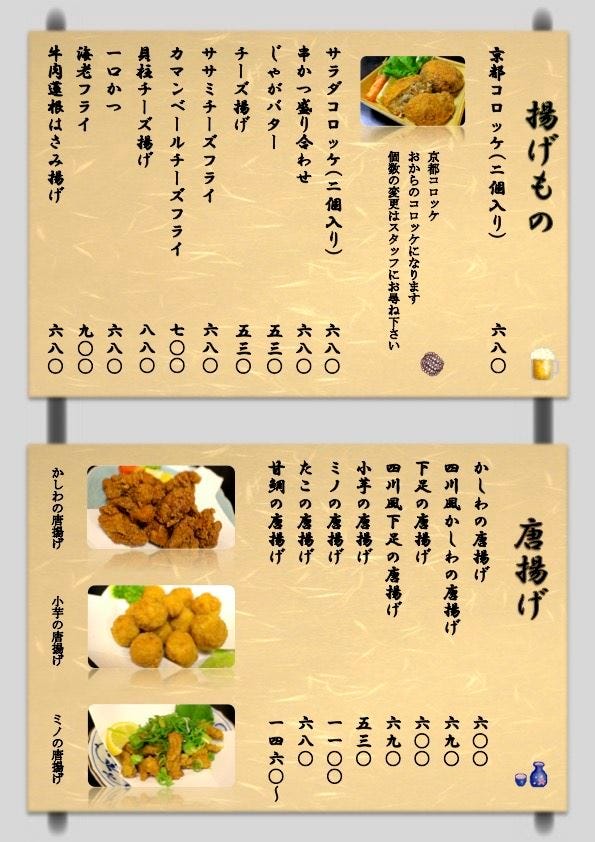 揚げもの
京都コロッケ(二個入り) 六八〇
京都コロッケ
おからのコロッケになります
個数の変更はスタッフにお尋ね下さい
サラダコロッケ(二個入り) 六八〇
串かつ盛り合わせ 六八〇
じゃがバター 五三〇
チーズ揚げ 五三〇
ササミチーズフライ 六八〇
カマンベールチーズフライ 七〇〇
貝柱チーズ揚げ 八八〇
一口かつ 六八〇
海老フライ 九〇〇
牛肉蓮根はさみ揚げ 六八〇
唐揚げ
かしわの唐揚げ 六〇〇
四川風かしわの唐揚げ 六九〇
下足の唐揚げ 六〇〇
四川風下足の唐揚げ 六九〇
小芋の唐揚げ 五三〇
ミノの唐揚げ 一一〇〇
たこの唐揚げ 六八〇
甘鯛の唐揚げ 一四六〇~
かしわの唐揚げ
小芋の唐揚げ
ミノの唐揚げ